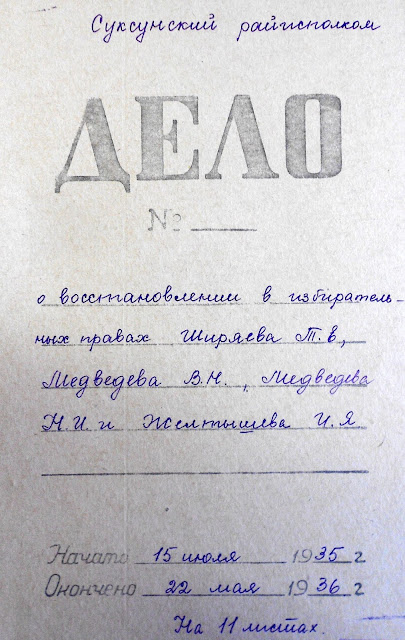 Суксунский райисполком
ДЕЛО
№
о восстановлении в избиратель-
ных правах Ширяева Т.Е,
Медведева В.Н., Медведева
Н.И. и Желтышева И.Я
Начато 15 июля 1935 г
Окончено 22 мая 1936 г
На 11 листах.